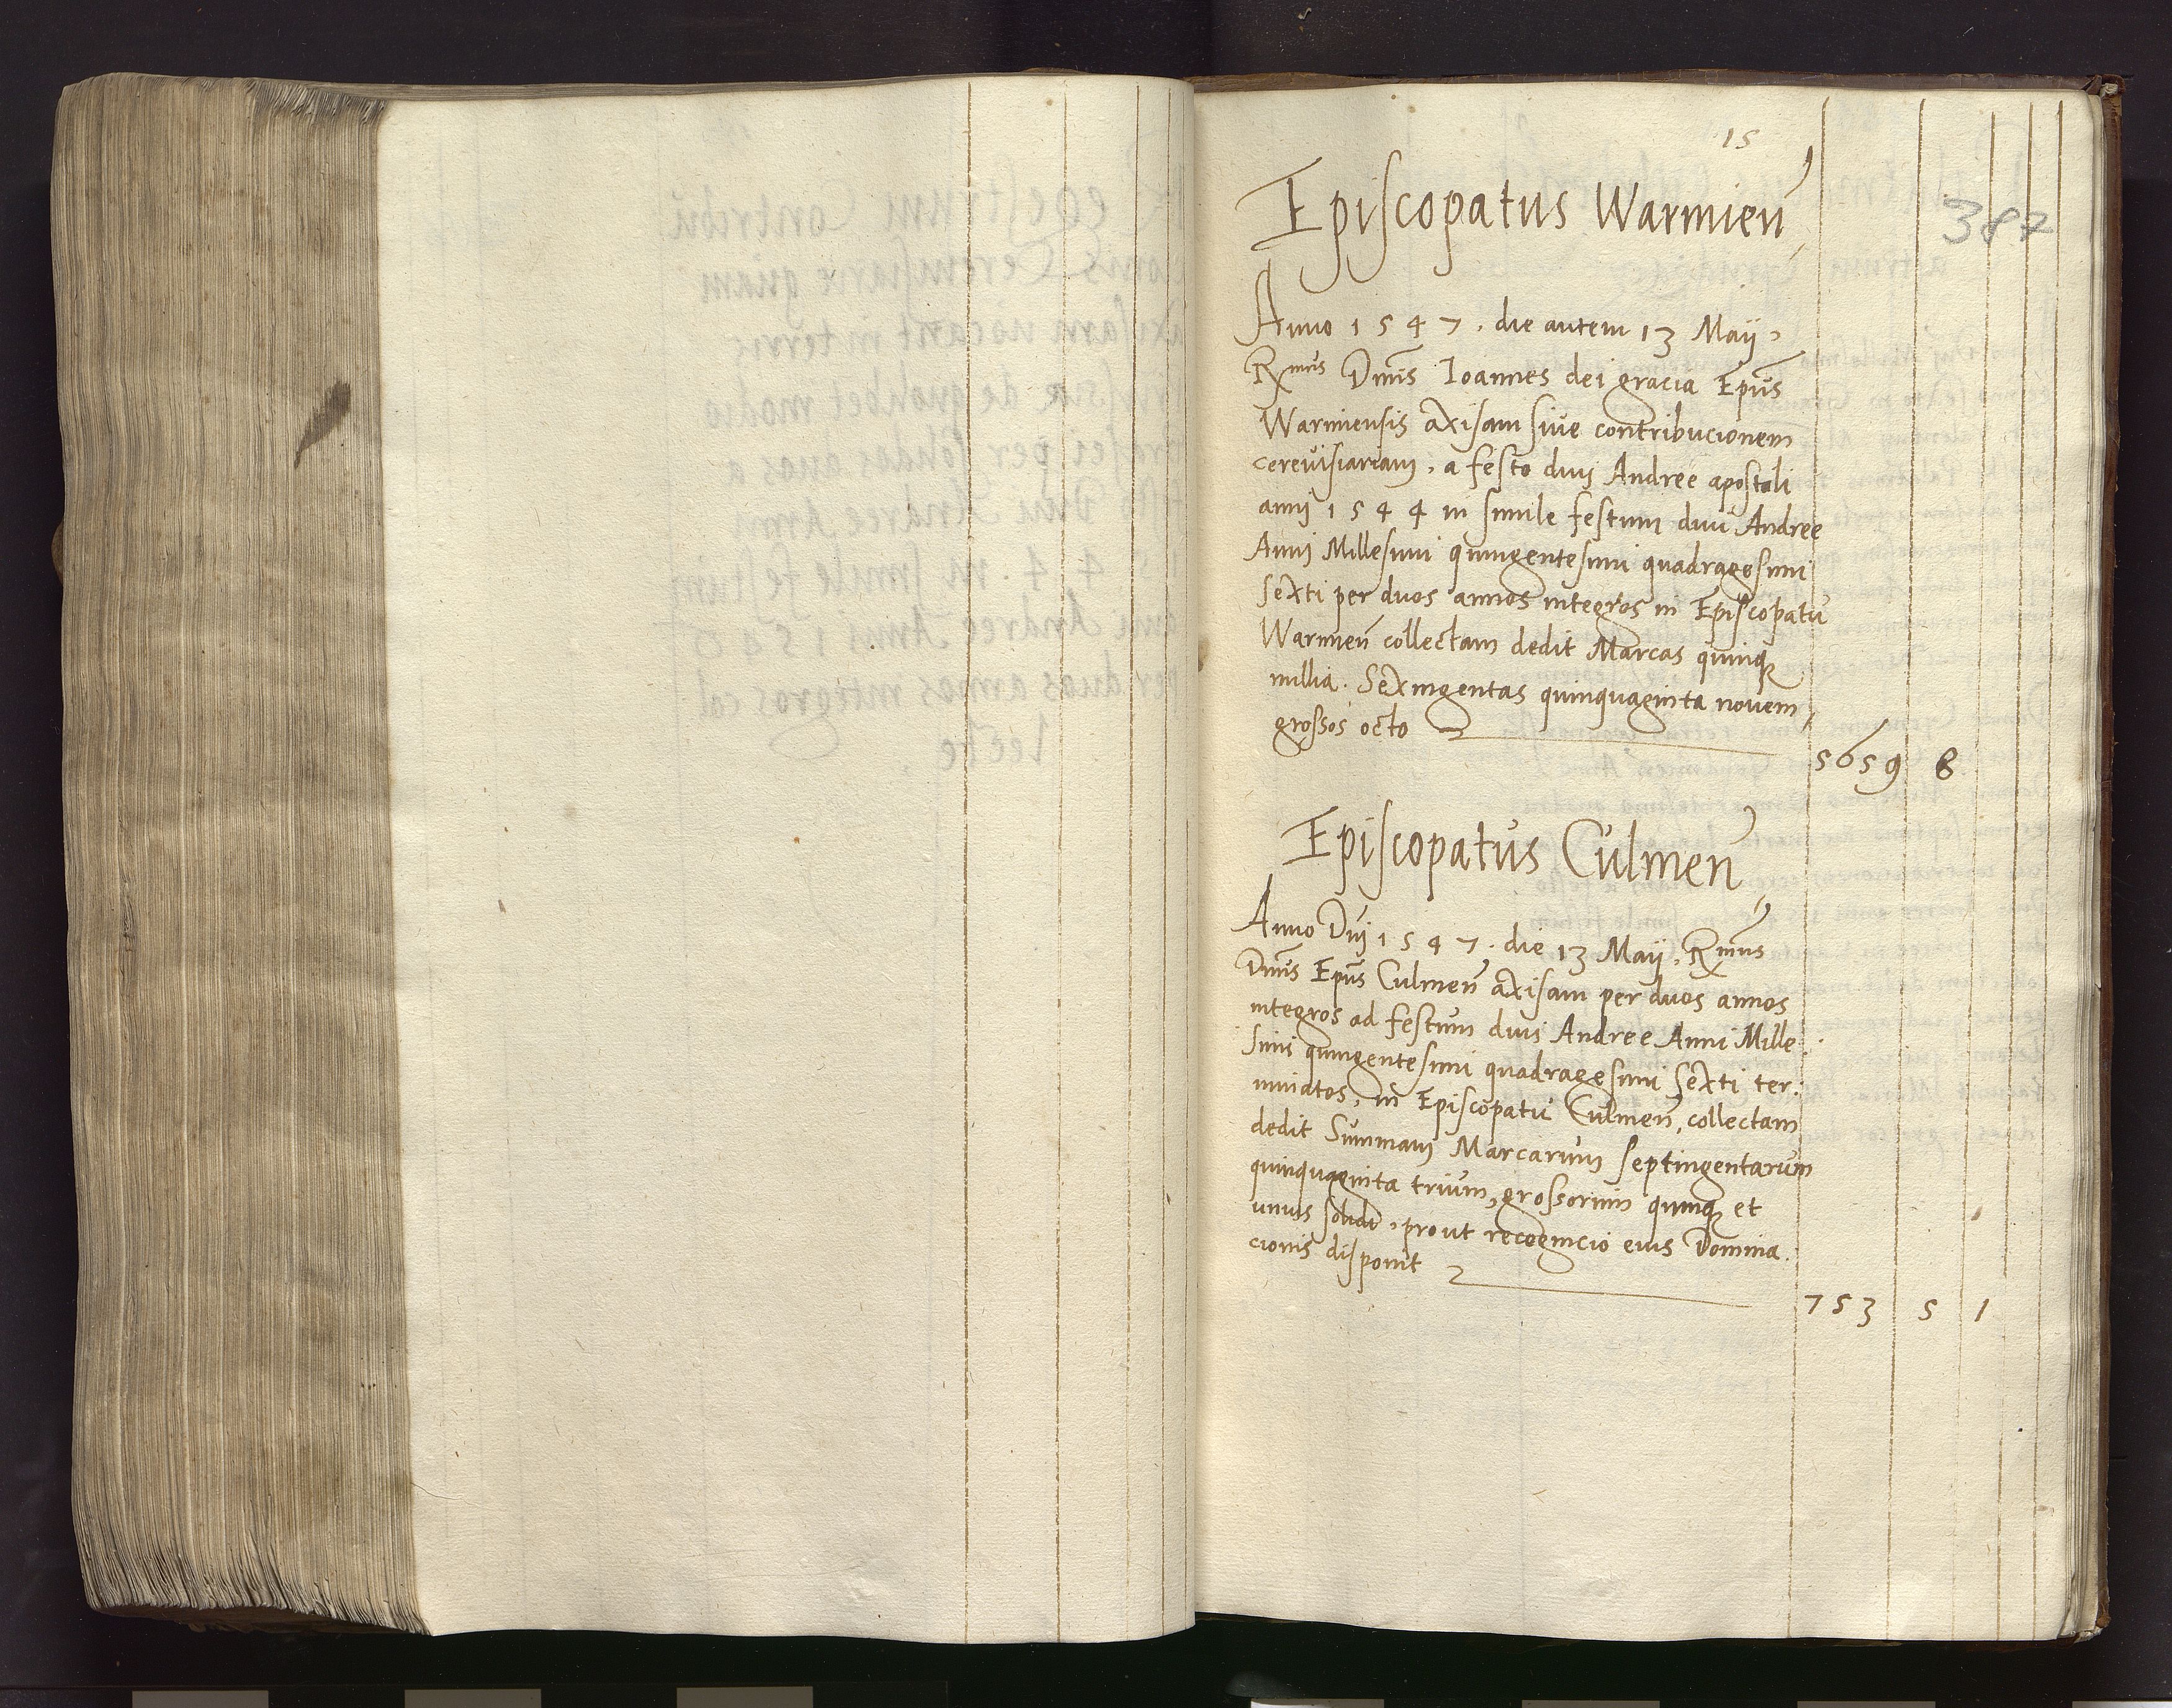 15
387
Episcopatus Warmien̄
Anno 1547. die autem 13 Maij,
Rmus Dn̄s Ioannes dei gracia Ep̄us
Warmiensis axisam sive contribucionem
cerevisiariam, a festo divi Andree apostoli
anni 1544 in simile festum divi Andree
Anni Millesimi quingentesimi quadragesimi
Sexti per duos annos integros in Episcopatu
Warmien̄ collectam dedit Marcas quinq
millia. Sexingentas quinquaginta novem,
grossos octo
5659 8
Episcopatus Culmen̄
Anno Dn̄i 1547. die 13 Maij, Rmus
Dn̄s Ep̄us Culmen̄ axisam per duos annos
integros ad festum divi Andree Anni Mille
simi quingentesimi quadragesimi Sexti ter:
minatos, in Episcopatu Culmen̄, collectam
dedit Summam Marcarum septingentarum
quinquaginta trium, grossorum quinq et
unius solidi, prout recognicio eius Domina.
cionis disponit
753 5 1